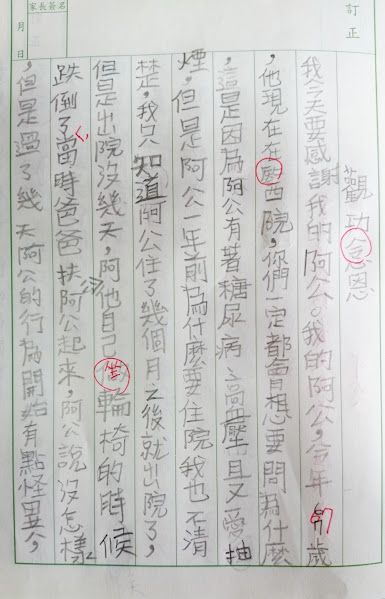 家長簽名
訂正
月 日
觀功念恩
我今天要感謝我的阿公。我的阿公,今年87歲
,他現在在西院,你們一定都會想要問為什麼
,這是因為阿公有著糖尿病、高血壓且又愛抽
煙,但是阿公一年前為什麼要住院我也不清
楚,我只知道阿公住了幾個月之後就出院了,
但是出院沒幾天,阿他自己坐輪椅的時候
跌倒了,當時爸爸扶阿公起來,阿公說沒怎樣
,但是過了幾天阿公的行為開始有點怪異,